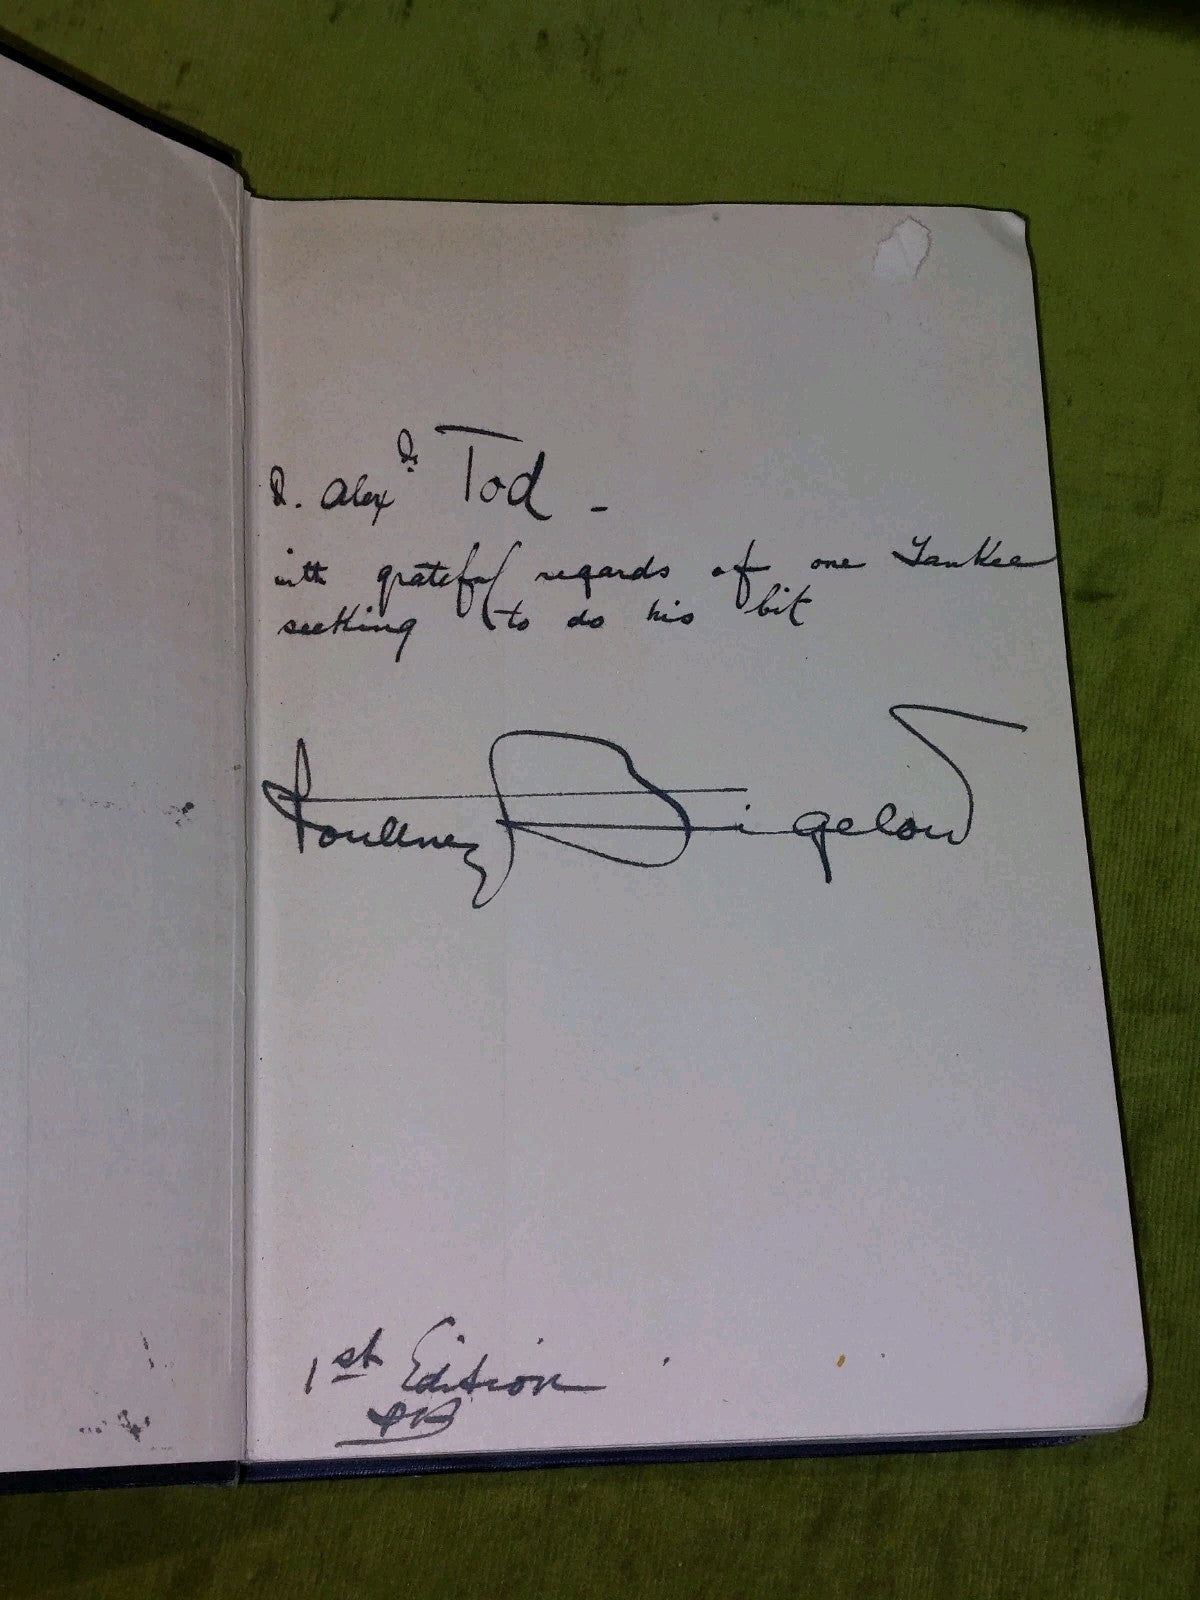 Alex Tod -
with grateful regards of one Yankee
seeking to do his bit
Poultney Bigelow
1st Edition
PB